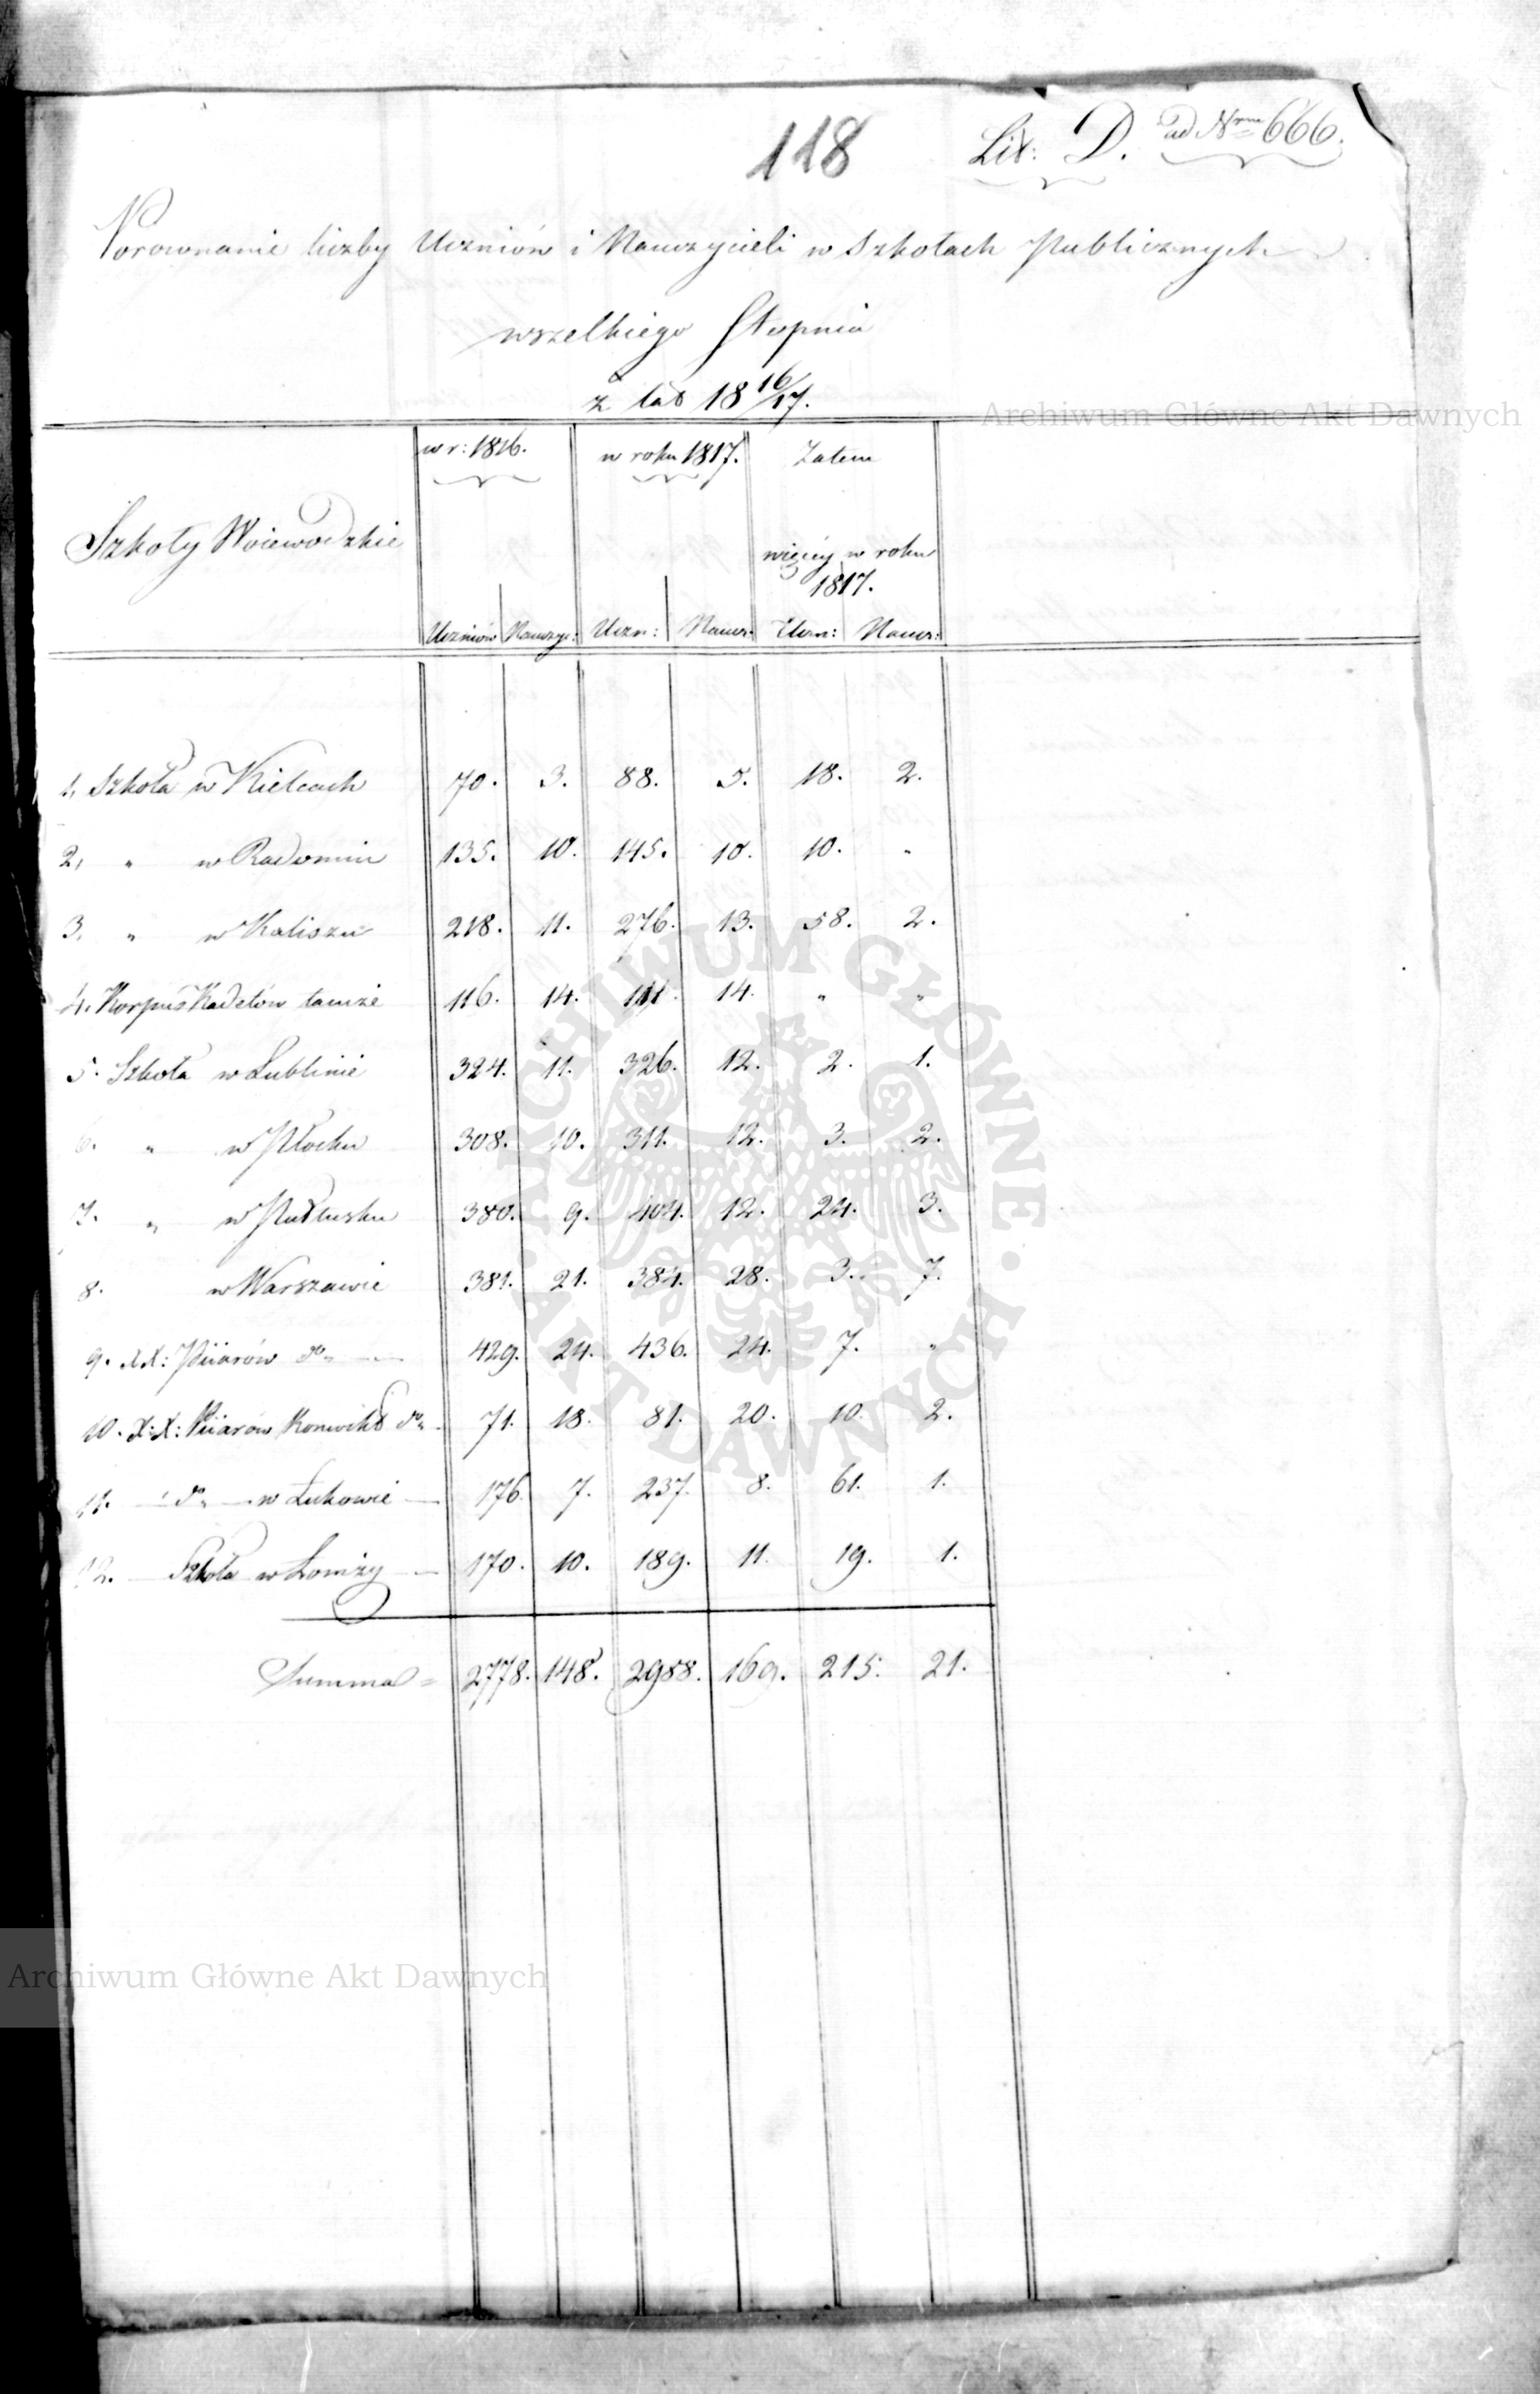 118
Lit: D. ad Nrm 666.
Porownanie liczby Uczniów i Nauczycieli w Szkołach Publicznych
wszelkiego Stopnia
z lat 18 16/17.
Archiwum Główne Akt Dawnych
w r: 1816. w roku 1817. Zatem
Szkoły Woiewodzkie
więcéy w roku
1817.
Uczniów Nauczyc: Uczn: Naucz: Uczn: Naucz:
1, Szkoła w Kielcach 70. 3. 88. 5. 18. 2.
2, " w Radomiu 135. 10. 145. 10. 10. "
3. " w Kaliszu 218. 11. 276. 13. 58. 2.
4. Korpus Kadetów tamże 116. 14. 111. 14. " "
5. Szkoła w Lublinie 324. 11. 326. 12. 2. 1.
6. " w Płocku 308. 10. 311. 12. 3. 2.
7. " w Pułtusku 380. 9. 404. 12. 24. 3.
8. w Warszawie 381. 21. 384. 28. 3. 7.
9. XX: Piiarów do 429. 24. 436. 24. 7. "
10. X:X: Piiarów Konwikt do 71. 18. 81. 20. 10. 2.
11. — do — w Łukowie — 176. 7. 237. 8. 61. 1.
12. — Szkoła w Łomży — 170. 10. 189. 11. 19. 1.
Summa = 2778. 148. 2988. 169. 215. 21.
ARCHIWUM GŁÓWNE · AKT DAWNYCH ·
Archiwum Główne Akt Dawnych